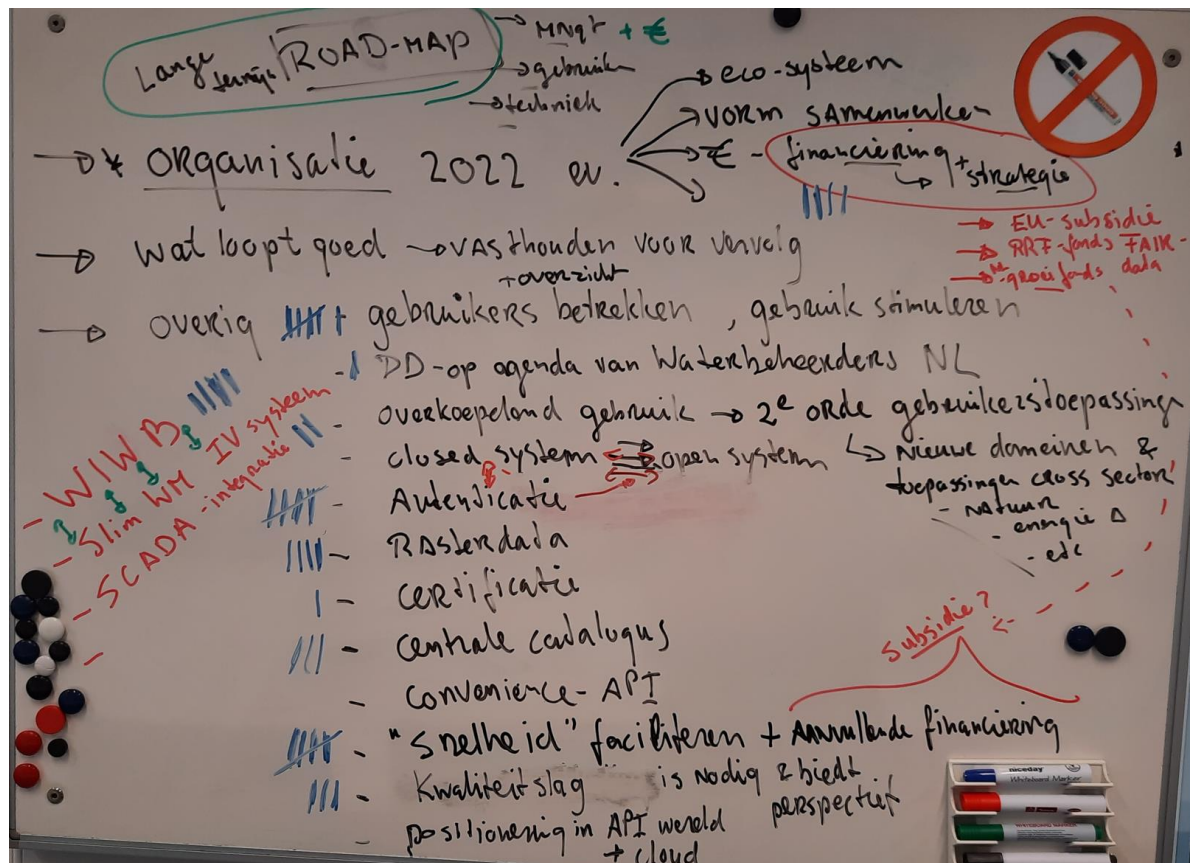 Lange termijn ROAD-MAP
→ MNGT + €
→ gebruik
→ techniek
→ * ORGANISATIE 2022 ev.
→ eco-systeem
→ VORM SAMENWERKEN
→ € - financiering + strategie
→ EU-subsidie
→ RRF-fonds FAIR-
→ groeifonds data
→ Wat loopt goed → VASTHOUDEN VOOR VERVOLG
+ overzicht
→ OVERIG + gebruikers betrekken, gebruik stimuleren
- DD-op agenda van Waterbeheerders NL
- overkoepelend gebruik → 2e orde gebruikerstoepassing
- closed system open system
↳ Nieuwe domeinen &
toepassingen cross sector
- NATUUR
- energie Δ
- etc
- Autenticatie
- RAsterdata
- certificatie
- centrale catalogus
- convenience-API
- "snelheid" faciliteren + AANvullende financiering
- Kwaliteitslag is nodig & biedt
perspectief
- positionering in API wereld
+ cloud
- WIWB
- Slim WM IV systeem
- SCADA-integratie
Subsidie?
niceday
Whiteboard Marker